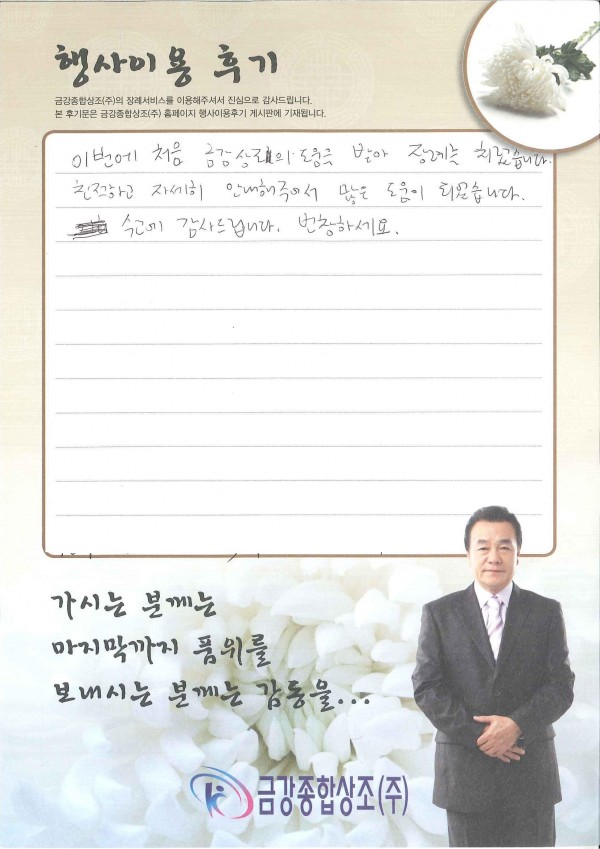 행사이용 후기
금강종합상조(주)의 장례서비스를 이용해주셔서 진심으로 감사드립니다.
본 후기문은 금강종합상조(주) 홈페이지 행사이용후기 게시판에 기재됩니다.
이번에 처음 금강상조의 도움을 받아 장례를 치렀습니다.
친절하고 자세히 안내해주어서 많은 도움이 되었습니다.
수고에 감사드립니다. 번창하세요.
가시는 분께는
마지막까지 품위를
보내시는 분께는 감동을...
금강종합상조(주)